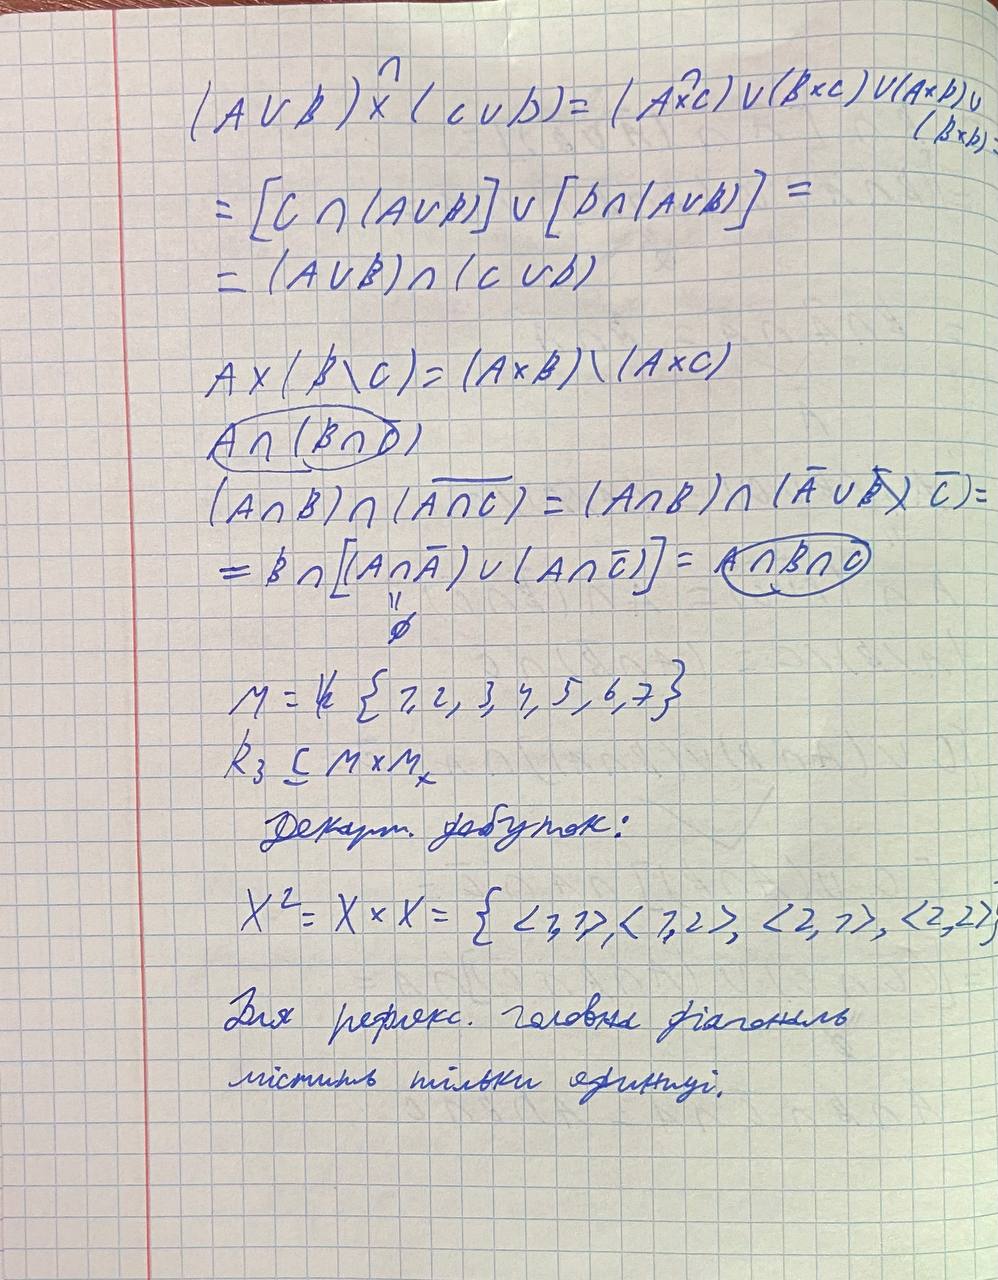 (A∪B) × ∩ (C∪D) = (A × ∩ C) ∪ (B×C) ∪ (A×D) ∪
(B×D) =
= [C ∩ (A∪B)] ∪ [D ∩ (A∪B)] =
= (A∪B) ∩ (C∪D)
A × (B \ C) = (A×B) \ (A×C)
A ∩ (B ∩ C̅)
(A∩B) ∩ (A̅∩̅C̅) = (A∩B) ∩ (A̅ ∪ C̅) =
= B ∩ [(A∩A̅) ∪ (A∩C̅)] = A∩B∩C̅
"
∅
M = {1, 2, 3, 4, 5, 6, 7}
R₃ ⊆ M × M
Декарт. добуток:
X² = X × X = {<1,1>, <1,2>, <2,1>, <2,2>}
Для рефлекс. головна діагональ
містить тільки одиниці.